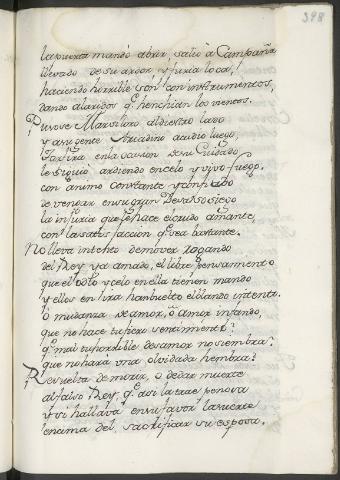 398
la puerta mandó abrir, salió à Campaña
llevado de su ardor, y furia loca,
haciendo horrible són con instrumentos,
dando alaridos q̃ henchian los vientos.
Pusose Marsiloro al diestro lado
y a su gente Ariadino acudio luego,
en la ocasion de su Cuidado
le siguió ardiendo en celo y vivo fuego.
con animo Constante
de vengar en su gran
la injuria que se hace el crudo amante,
con la satisfacción q̃ sea bastante.
No lleva intento de mover rogando
del Rey ya amado, el libre pensamiento
que el odio y celo en ella tienen mando
y ellos en ira han buelto el blando intento.
ò mudanza de amor, ò amor infando,
que no hace tu fiero sentimiento?
q̃ mal tu horrible desamor no siembra?
que no hará una olvidada hembra?
Resuelta de morir, o de dar muerte
al falso Rey, q̃ asi la trae penosa
y si hallava en su favor la suerte
encima del sacrificar su esposa.